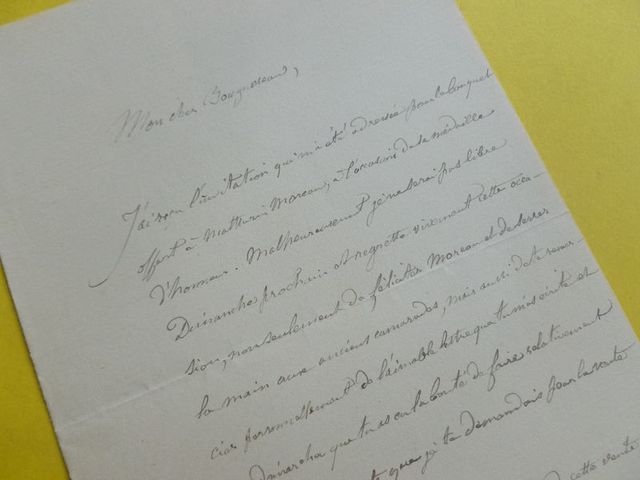 Mon cher Bouguereau,
J'ai reçu l'invitation qui m'a été adressée pour le banquet
offert à Mathurin Moreau, à l'occasion de sa médaille
d'honneur. Malheureusement je ne serai pas libre
Dimanche prochain et regrette vivement cette occa-
sion, non seulement de féliciter Moreau et de serrer
la main aux anciens camarades, mais aussi de te remer-
cier personnellement de l'aimable lettre que tu m'as écrite et
démarche que tu as eu la bonté de faire relativement
que je te demandais pour la vente
cette vente